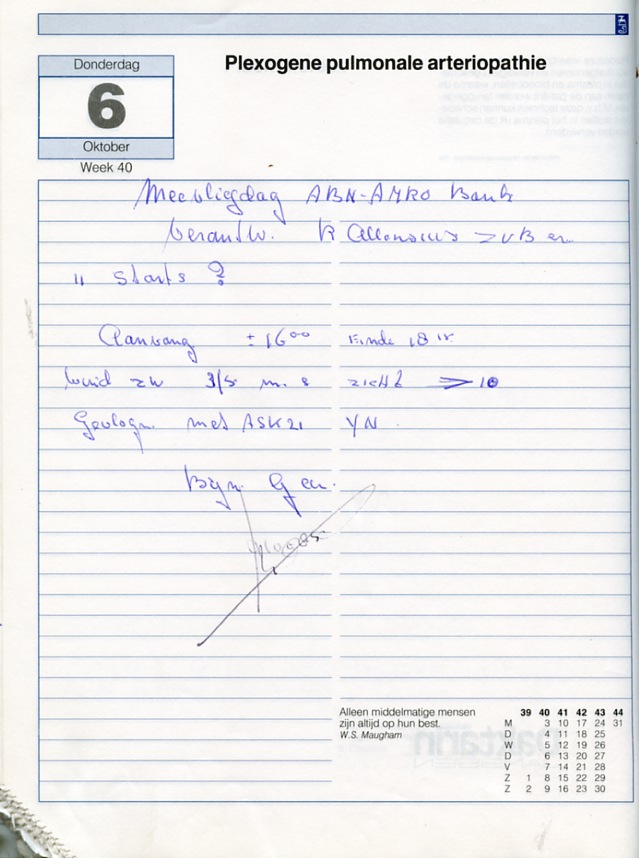 Plexogene pulmonale arteriopathie
Donderdag
6
Oktober
Week 40
Meevliegdag ABN-AMRO Bank
verantw. R
" starts ?
Aanvang ± 16°° Einde 18
wind zw 3/5 m.s zicht > 10
Gevlogn. met ASK21 YN.
Alleen middelmatige mensen
zijn altijd op hun best.
W.S. Maugham
39 40 41 42 43 44
M 3 10 17 24 31
D 4 11 18 25
W 5 12 19 26
D 6 13 20 27
V 7 14 21 28
Z 1 8 15 22 29
Z 2 9 16 23 30